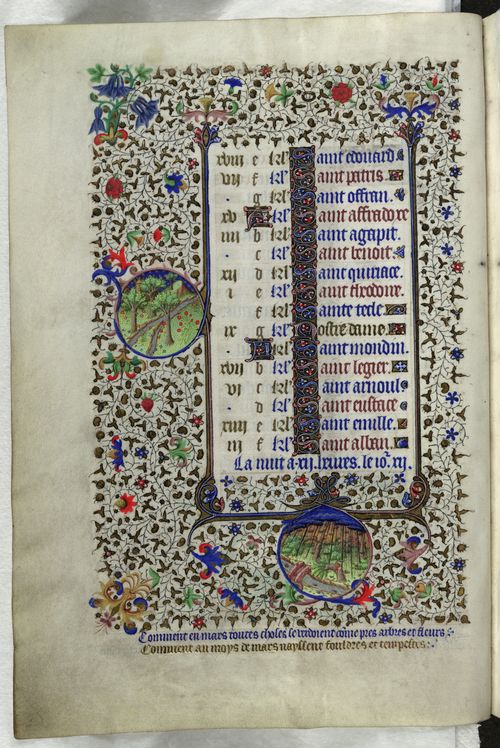 xviii e kl' Saint edouard
vii f kl' Saint patris
· g kl' Saint offran
xv A kl' Saint affradoxe
iiii b kl' Saint agapit
· c kl' Saint benoit
xii d kl' Saint quiriace
i e kl' Saint theodore
· f kl' Sainte tecle
ix g kl' Nostre dame
· A kl' Saint mondin
xvii b kl' Saint legier
vi c kl' Saint arnoul
· d kl' Saint eustace
xiiii e kl' Saint emille
iii f kl' Saint alban
La nuit a xii heures. le ior. xii.
Comment en mars toutes choses se verdoient come pres arbres et fleurs
Comment au moys de mars nayssent fouldres et tempestes